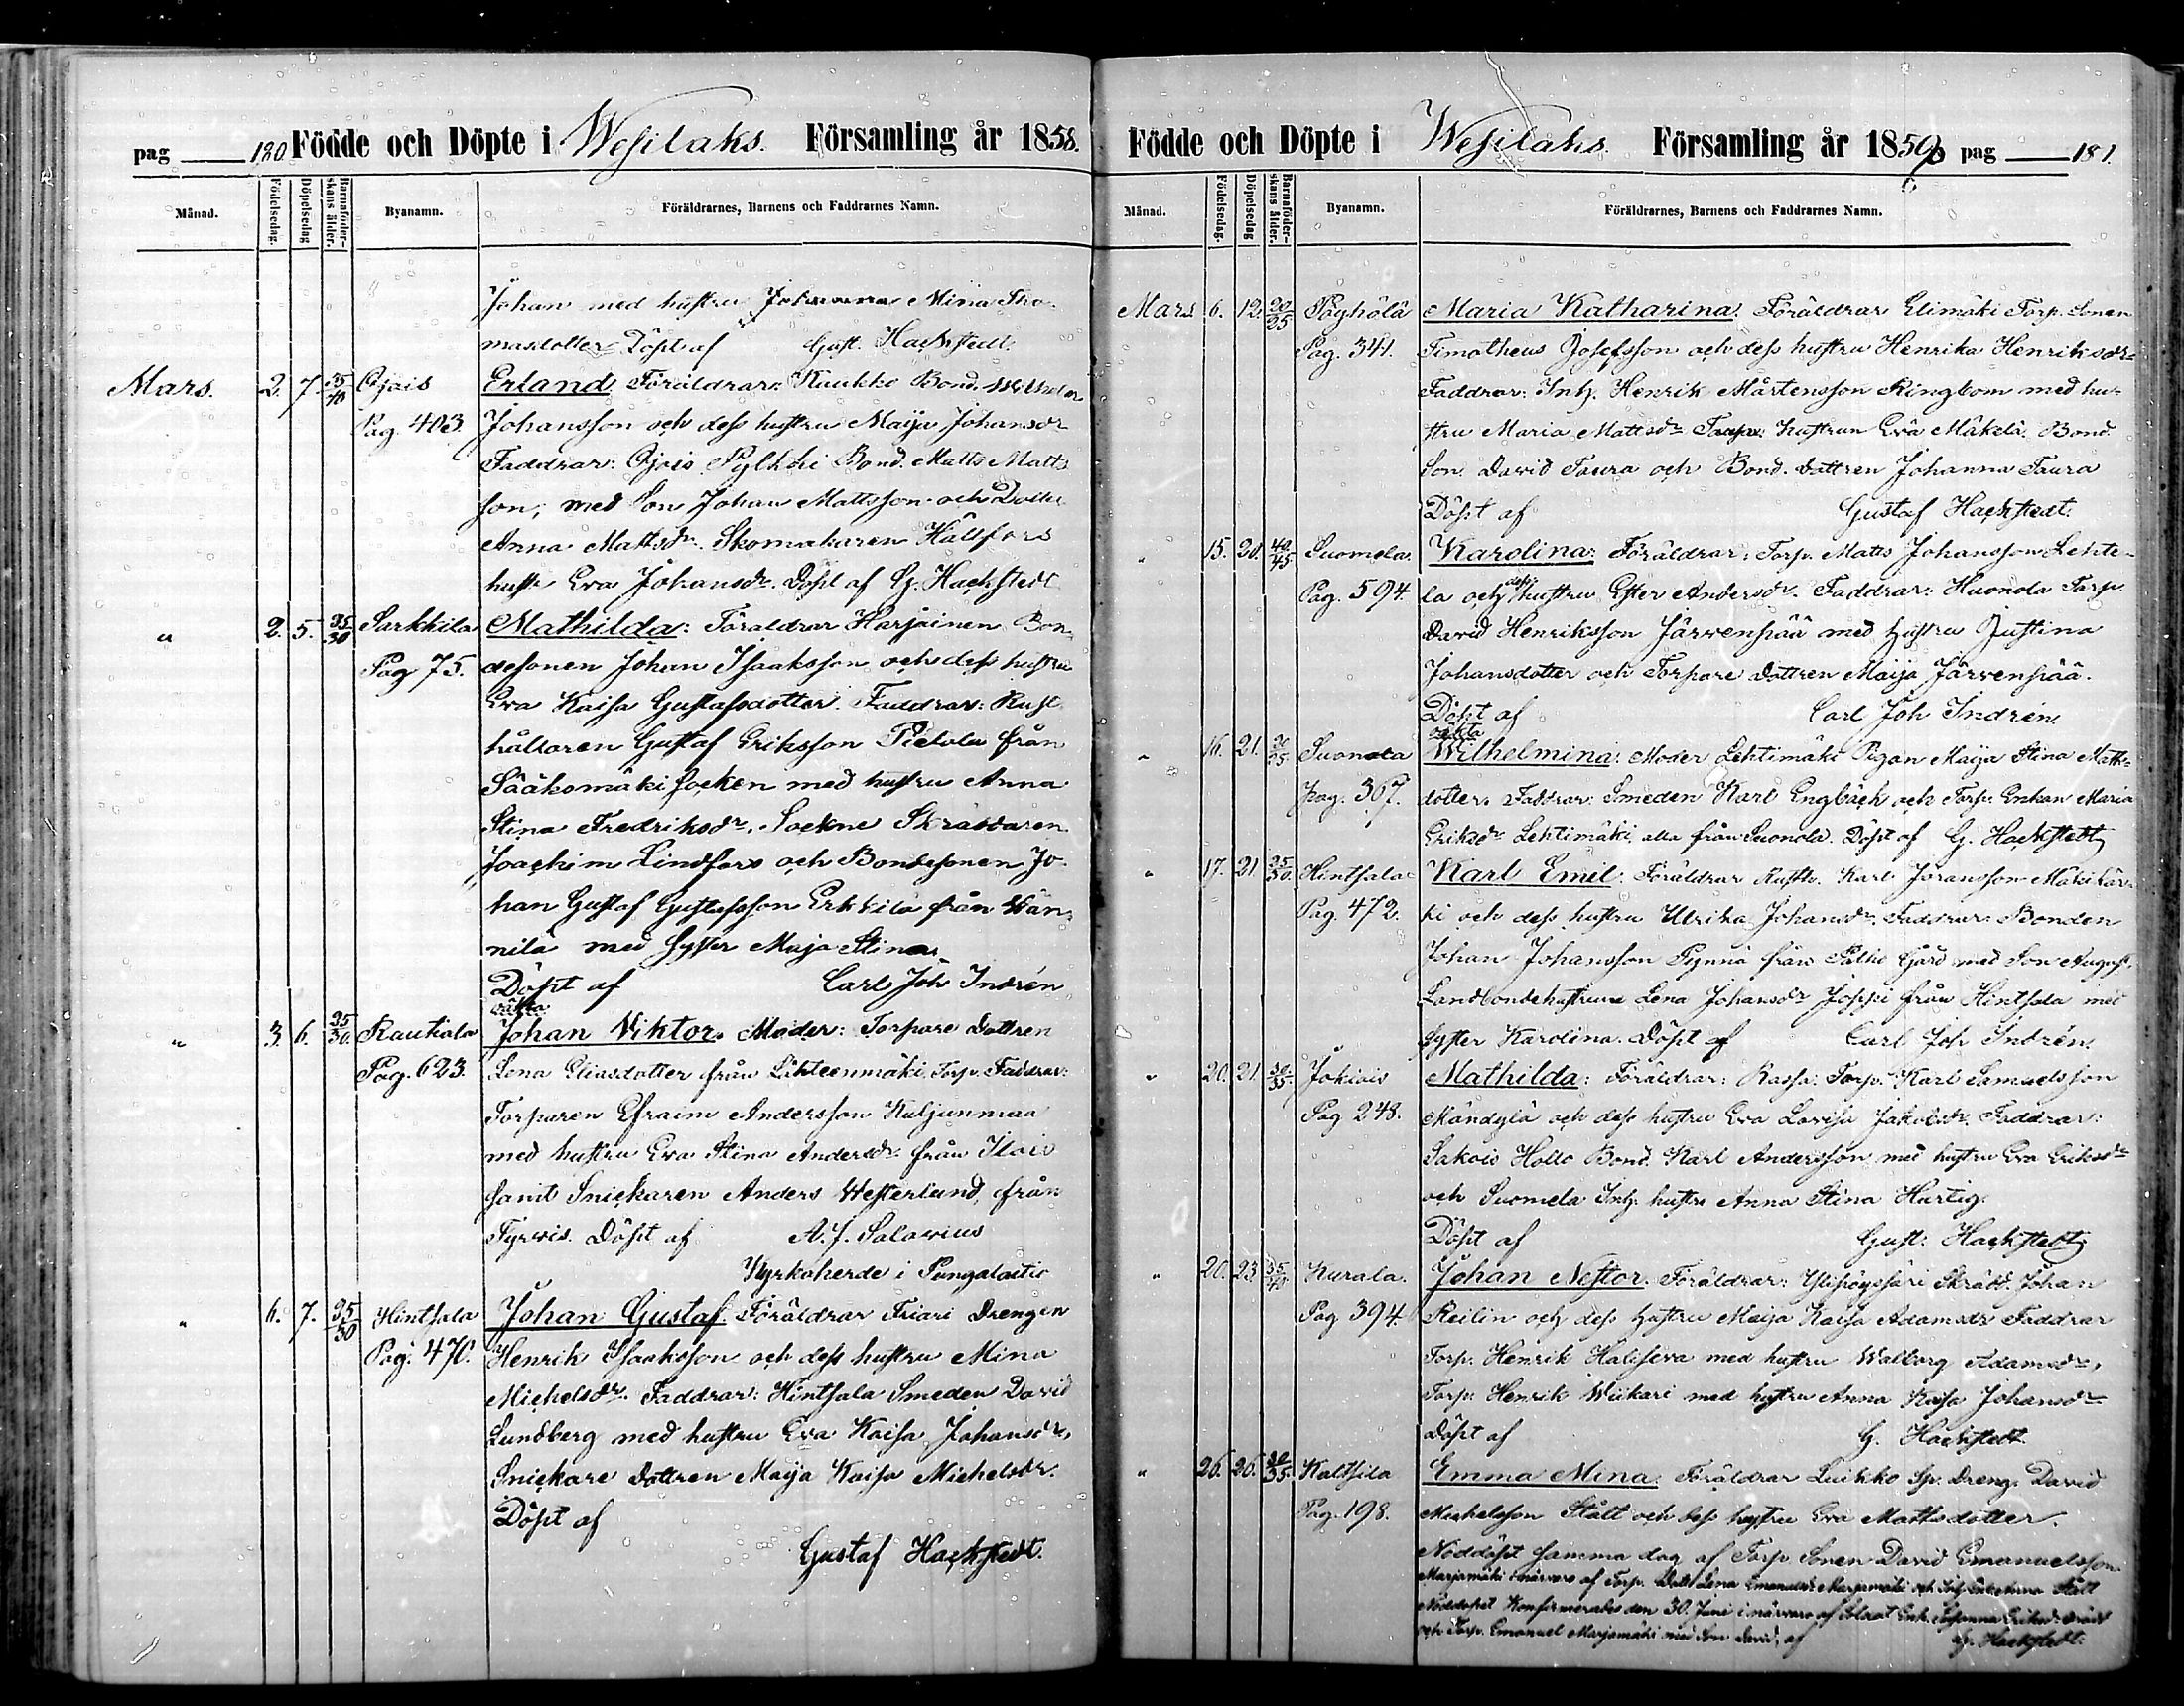 pag 180 Födde och Döpte i Wesilaks. Församling år 1858.
Månad. Födelsedag. Döpelsedag Barnaföderskans ålder. Byanamn. Föräldrarnes, Barnens och Faddrarnes Namn.
Johan med hustru Johanna Mina Tho-
masdotter Döpt af Gust. Hackstedt.
Mars. 2. 7. 35/40 Ojois Erland. Föräldrar: Kuukko Bond.
Pag. 403. Johansson och dess hustru Maija Johansdr
Faddrar: Ojois Pylkki Bond. Matts Matts
son, med Son Johan Mattsson och Dotter
Anna Mattsdr. Skomakaren Hällfors
hustr. Eva Johansdr. Döpt af G. Hackstedt
" 2. 5. 25/30 Sarkkila Mathilda: Föräldrar Harjainen Bon-
Pag 75. desonen Johan Isaaksson och dess hustru
Eva Kaisa Gustafsdotter. Faddrar: Rust
hållaren Gustaf Eriksson Pietola från
Sääksmäki Socken med hustru Anna
Stina Fredriksdr. Sockne Skräddaren
Joachim Lindfors och Bondesonen Jo-
han Gustaf Gustafsson Erkkilä från Wän-
nilä med syster Maja Stina.
Döpt af Carl Joh Indrén
oäkta
" 3. 6. 25/30. Rautiala Johan Viktor. Moder: Torpare Dottren
Pag. 623. Lena Eliasdotter från Lähteenmäki Torp. Faddrar:
Torparen Efraim Andersson Kuljunmaa
med hustru Eva Stina Andersdr från Ilois
samt Snickaren Anders Westerlund, från
Tyrvis. Döpt af A. J. Salovius
Kyrkoherde i Pungalaitio
" 6. 7. 35/30 Hinsala Johan Gustaf. Föräldrar Friari Drengen
Pag. 470. Henrik Isaaksson och dess hustru Mina
Michelsdr. Faddrar: Hintsala Smeden David
Lundberg med hustru Eva Kaisa Johansdr,
Snickare Dottren Maija Kaisa Michelsdr.
Döpt af
Gustaf Hackstedt.
Födde och Döpte i Wesilaks. Församling år 1859 pag 181.
Månad. Födelsedag. Döpelsedag Barnaföderskans ålder. Byanamn. Föräldrarnes, Barnens och Faddrarnes Namn.
Mars 6. 12. 20/25 Pöyhölä Maria Katharina. Föräldrar Elimäki Torp. Sonen
Pag. 341. Timotheus Josefsson och dess hustru Henrika Henriksdr
Faddrar: Inh. Henrik Mårtensson Ringbom med hu-
stru Maria Mattsdr hustrun Eva Mäkelä. Bond.
Son. David Taura och Bond. Dottren Johanna Taura
Döpt af Gustaf Hackstedt.
" 15. 20. 40/45 Suomela. Karolina: Föräldrar: Torp. Matts Johansson Lehte-
Pag. 594. la och dess hustru Ester Andersdr. Faddrar: Huonola Torp.
David Henriksson Järvenpää med hustru Justina
Johansdotter och Torpare Dottren Maija Järvenpää.
Döpt af Carl Joh Indrén.
oäkta
" 16. 21. Suonola Wilhelmina. Moder Lehtimäki Pigan Maija Stina Matts-
Pag. 367. dotter. Faddrar: Smeden Karl Engbäck och Torp. Enkan Maria
Eriksdr Lehtimäki, alla från Suonola. Döpt af G. Hackstedt
" 17. 21 25/30. Hinsala Karl Emil. Föräldrar Rusth. Karl Johansson Mäkihär-
Pag. 472. ki och dess hustru Ulrika Johansdr. Faddrar: Bonden
Johan Johansson från Palho Gård med Son August.
Landbondehustrun Lena Johansdr Joppi från Hintsala med
syster Karolina. Döpt af Carl Joh Indrén.
" 20. 21. 30/35. Jokiois Mathilda: Föräldrar: Rassa. Torp. Karl Samuelsson
Pag 248. Mändylä och dess hustru Eva Lovisa Jakobsdr. Faddrar:
Sakois Hollo Bond. Karl Andersson med hustru Eva Eriksdr
och Suomela Inh. hustru Anna Stina Hartig.
Döpt af Gust. Hackstedt
" 20. 23 35/40 Kurala. Johan Nestor. Föräldrar: Skrädd. Johan
Pag 394. Reilin och dess hustru Maija Kaisa Adamsdr Faddrar
Torp. Henrik med hustru Walborg Adamsdr,
Torp. Henrik Wiikari med hustru Anna Kaisa Johansdr
Döpt af G. Hackstedt.
" 26. 26. 30/35. Kaltsila Emma Mina. Föräldrar Luikko Sp. Dreng. David
Pag. 198. Michelsson Stått och dess hustru Eva Mattsdotter.
Nöddöpt samma dag af Torp Sonen David Emanuelsson
Marjamäki i närvaro af Torp. Dott. Lena Emanuelsdr Marjamäki och Stått
Nöddopet Konfirmerades den 30. Juni i närvaro af Soldat Enk. Johanna Eriksdr
och Torp. Emanuel Marjamäki med Son David, af G. Hackstedt.